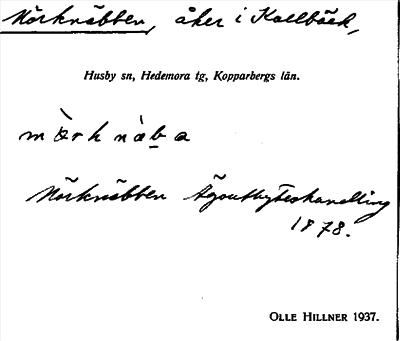 Mörknäbben, åker i Kallbäck,
Husby sn, Hedemora tg, Kopparbergs län.
mòrknàba
Mörknäbben Ägoutbyteshandling
1878.
OLLE HILLNER 1937.